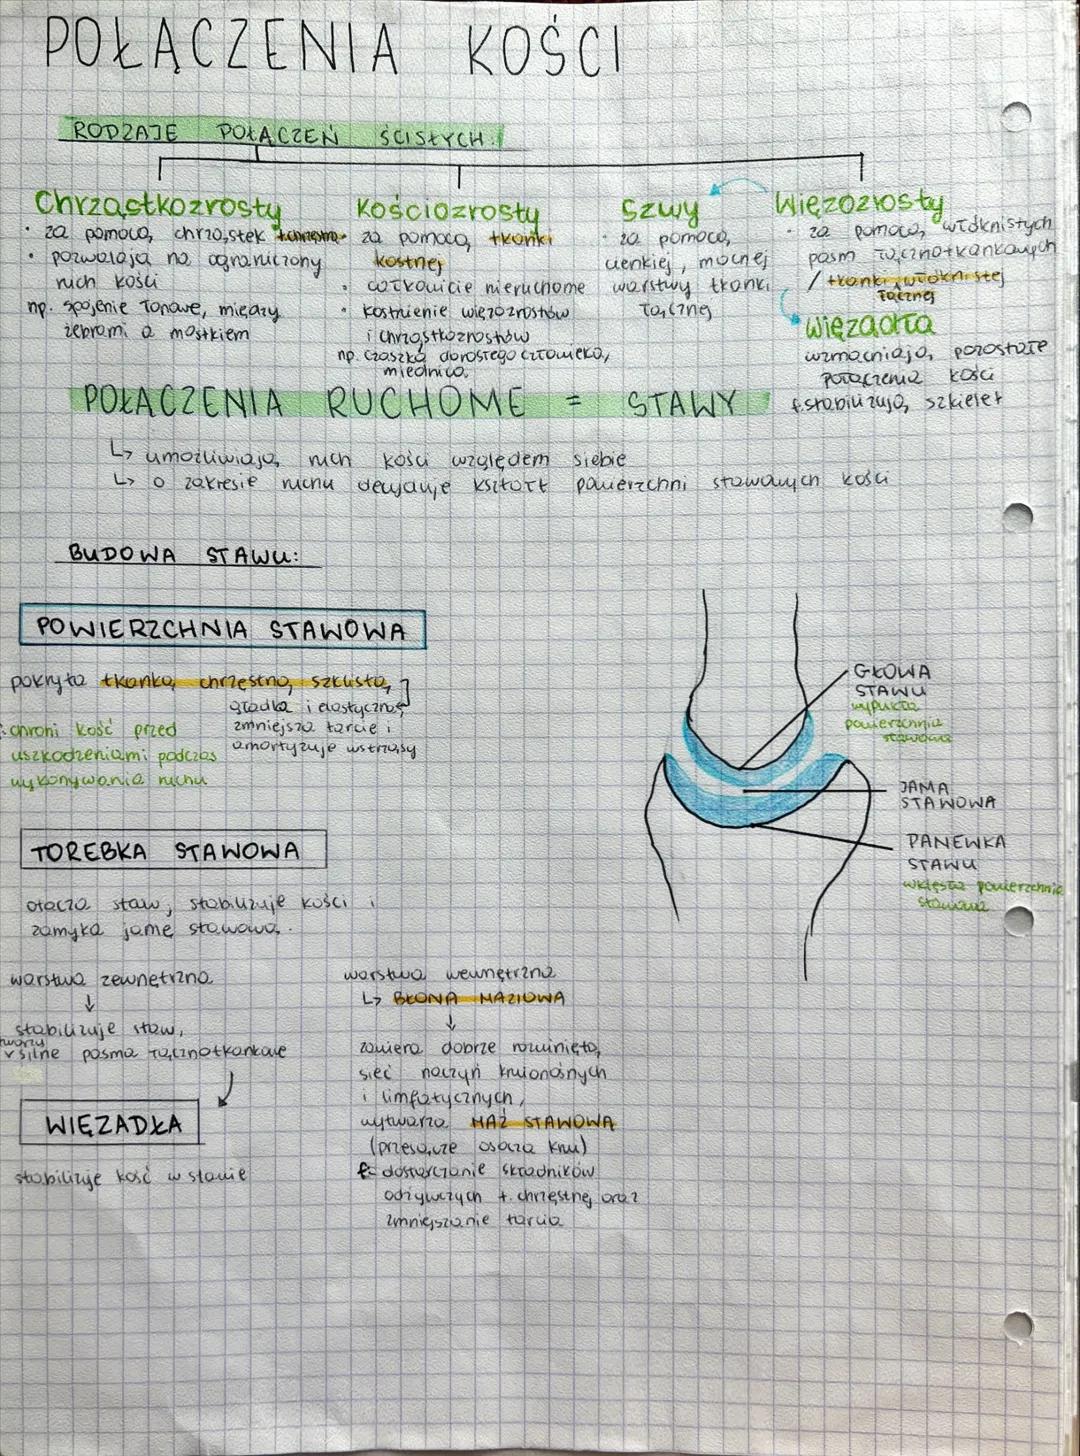 POŁĄCZENIA KOŚCI
RODZAJE POŁĄCZEŃ ŚCISŁYCH:
Chrząstkozrosty
· za pomocą chrząstek
· pozwalają na ograniczony
ruch kości
np. spojenie łonowe, między
żebrami a mostkiem
Kościozrosty
· za pomocą tkanki
kostnej
· całkowicie nieruchome
· kostnienie więzozrostów
i chrząstkozrostów
np. czaszka dorosłego człowieka,
miednica.
Szwy
· za pomocą
cienkiej, mocnej
warstwy tkanki
łącznej
Więzozrosty
· za pomocą włóknistych
pasm łącznotkankowych
/ tkanki włóknistej
łącznej
więzadła
wzmacniają pozostałe
połączenia kości
f. stabilizują szkielet
POŁĄCZENIA RUCHOME = STAWY
↳ umożliwiają ruch kości względem siebie
↳ o zakresie ruchu decyduje kształt powierzchni stawowych kości
BUDOWA STAWU:
POWIERZCHNIA STAWOWA
pokryta tkanką chrzęstną szklistą
gładka i elastyczna,
zmniejsza tarcie i
amortyzuje wstrząsy
f: chroni kość przed
uszkodzeniami podczas
wykonywania ruchu
GŁOWA
STAWU
wypukła
powierzchnia
stawowa
JAMA
STAWOWA
PANEWKA
STAWU
wklęsła powierzchnia
stawowa
TOREBKA STAWOWA
otacza staw, stabilizuje kości i
zamyka jamę stawową.
warstwa zewnętrzna
↓
stabilizuje staw,
tworzy
v silne pasma łącznotkankowe
WIĘZADŁA
stabilizuje kość w stawie
warstwa wewnętrzna
↳ BŁONA MAZIOWA
↓
zawiera dobrze rozwiniętą
sieć naczyń krwionośnych
i limfatycznych,
wytwarza MAŹ STAWOWĄ
(przesącze osocza krwi)
f: dostarczanie składników
odżywczych t. chrzęstnej oraz
zmniejszanie tarcia